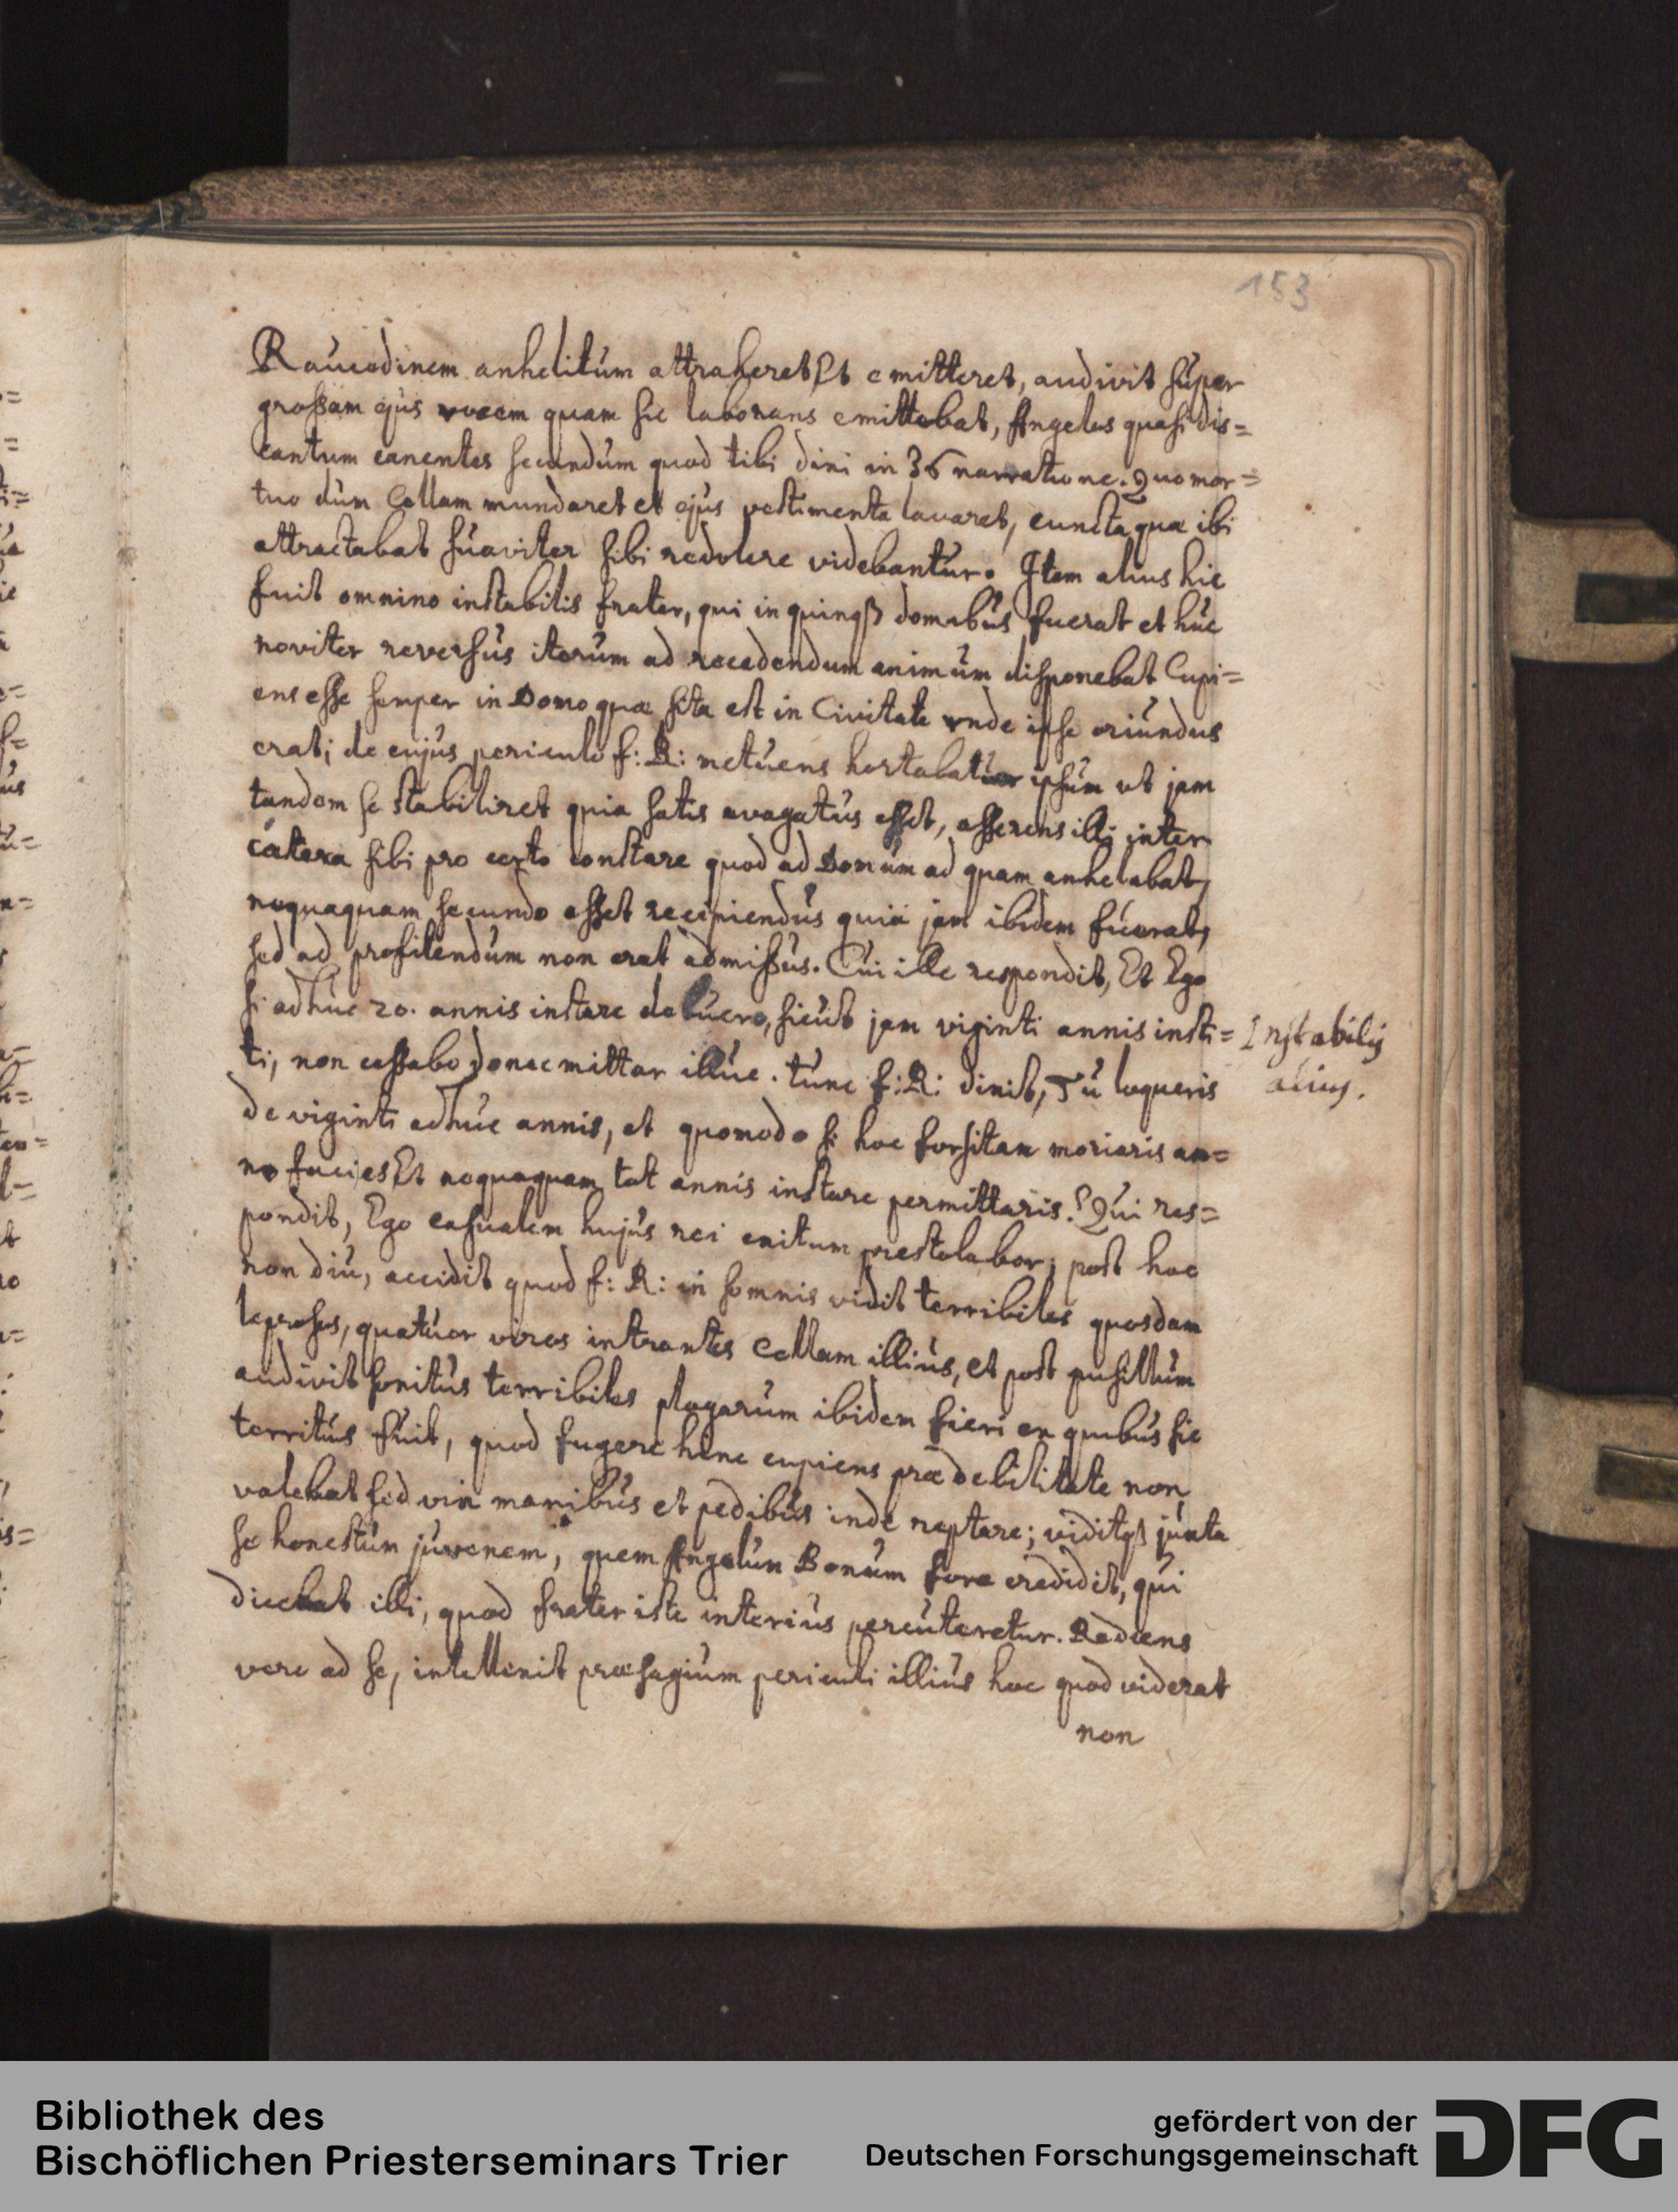 153
Raucedinem anhelitum attraheret Et emitteret, audivit super
grossam ejus vocem quam sic laborans emittebat, Angelos quasi dis=
cantum canentes secundum quod tibi dixi in 36 narratione. Quo mor=
tuo dum Cellam mundaret et ejus vestimenta lavaret, cuncta quæ ibi
attractabat suaviter sibi redolere videbantur. Item alius hic
fuit omnino instabilis frater, qui in quinqз domibus fuerat et huc
noviter reversus iterum ad recedendum animum disponebat Cupi=
ens esse semper in Domo quæ sita est in Civitate vnde ipse oriundus
erat; de cujus periculo f: R: metuens hortabatur ipsum ut jam
tandem se stabiliret quia satis evagatus esset, asserens illi inter
cætera sibi pro certo constare quod ad Domum ad quam anhelabat,
nequaquam secundo esset recipiendus quia jam ibidem fuerat,
sed ad profitendum non erat admissus. Cui ille respondit, Et Ego
si adhuc 20. annis instare debuero, sicut jam viginti annis insti=
ti, non cessabo donec mittar illuc. tunc f: R: dixit, Tu loqueris
de viginti adhuc annis, et quomodo si hoc forsitan moriaris an=
no facies Et nequaquam tot annis instare permittaris? Qui res=
pondit, Ego casualem hujus rei exitum præstolabor; post hoc
non diu, accidit quod f: R: in somnis vidit terribiles quosdam
leprosos, quatuor viros intrantes Cellam illius, et post pusillum
audivit sonitus terribiles plagarum ibidem fieri ex quibus sic
territus fuit, quod fugere hinc cupiens præ debilitate non
valebat sed vix manibus et pedibus inde reptare; viditqз juxta
se honestum juvenem, quem Angelum Bonum fore credidit, qui
dicebat illi, quod frater iste interius percuteretur. Rediens
vero ad se, intellexit præsagium periculi illius hoc quod viderat
non
Instabilis
alius.
Bibliothek des
Bischöflichen Priesterseminars Trier
gefördert von der
Deutschen Forschungsgemeinschaft
DFG